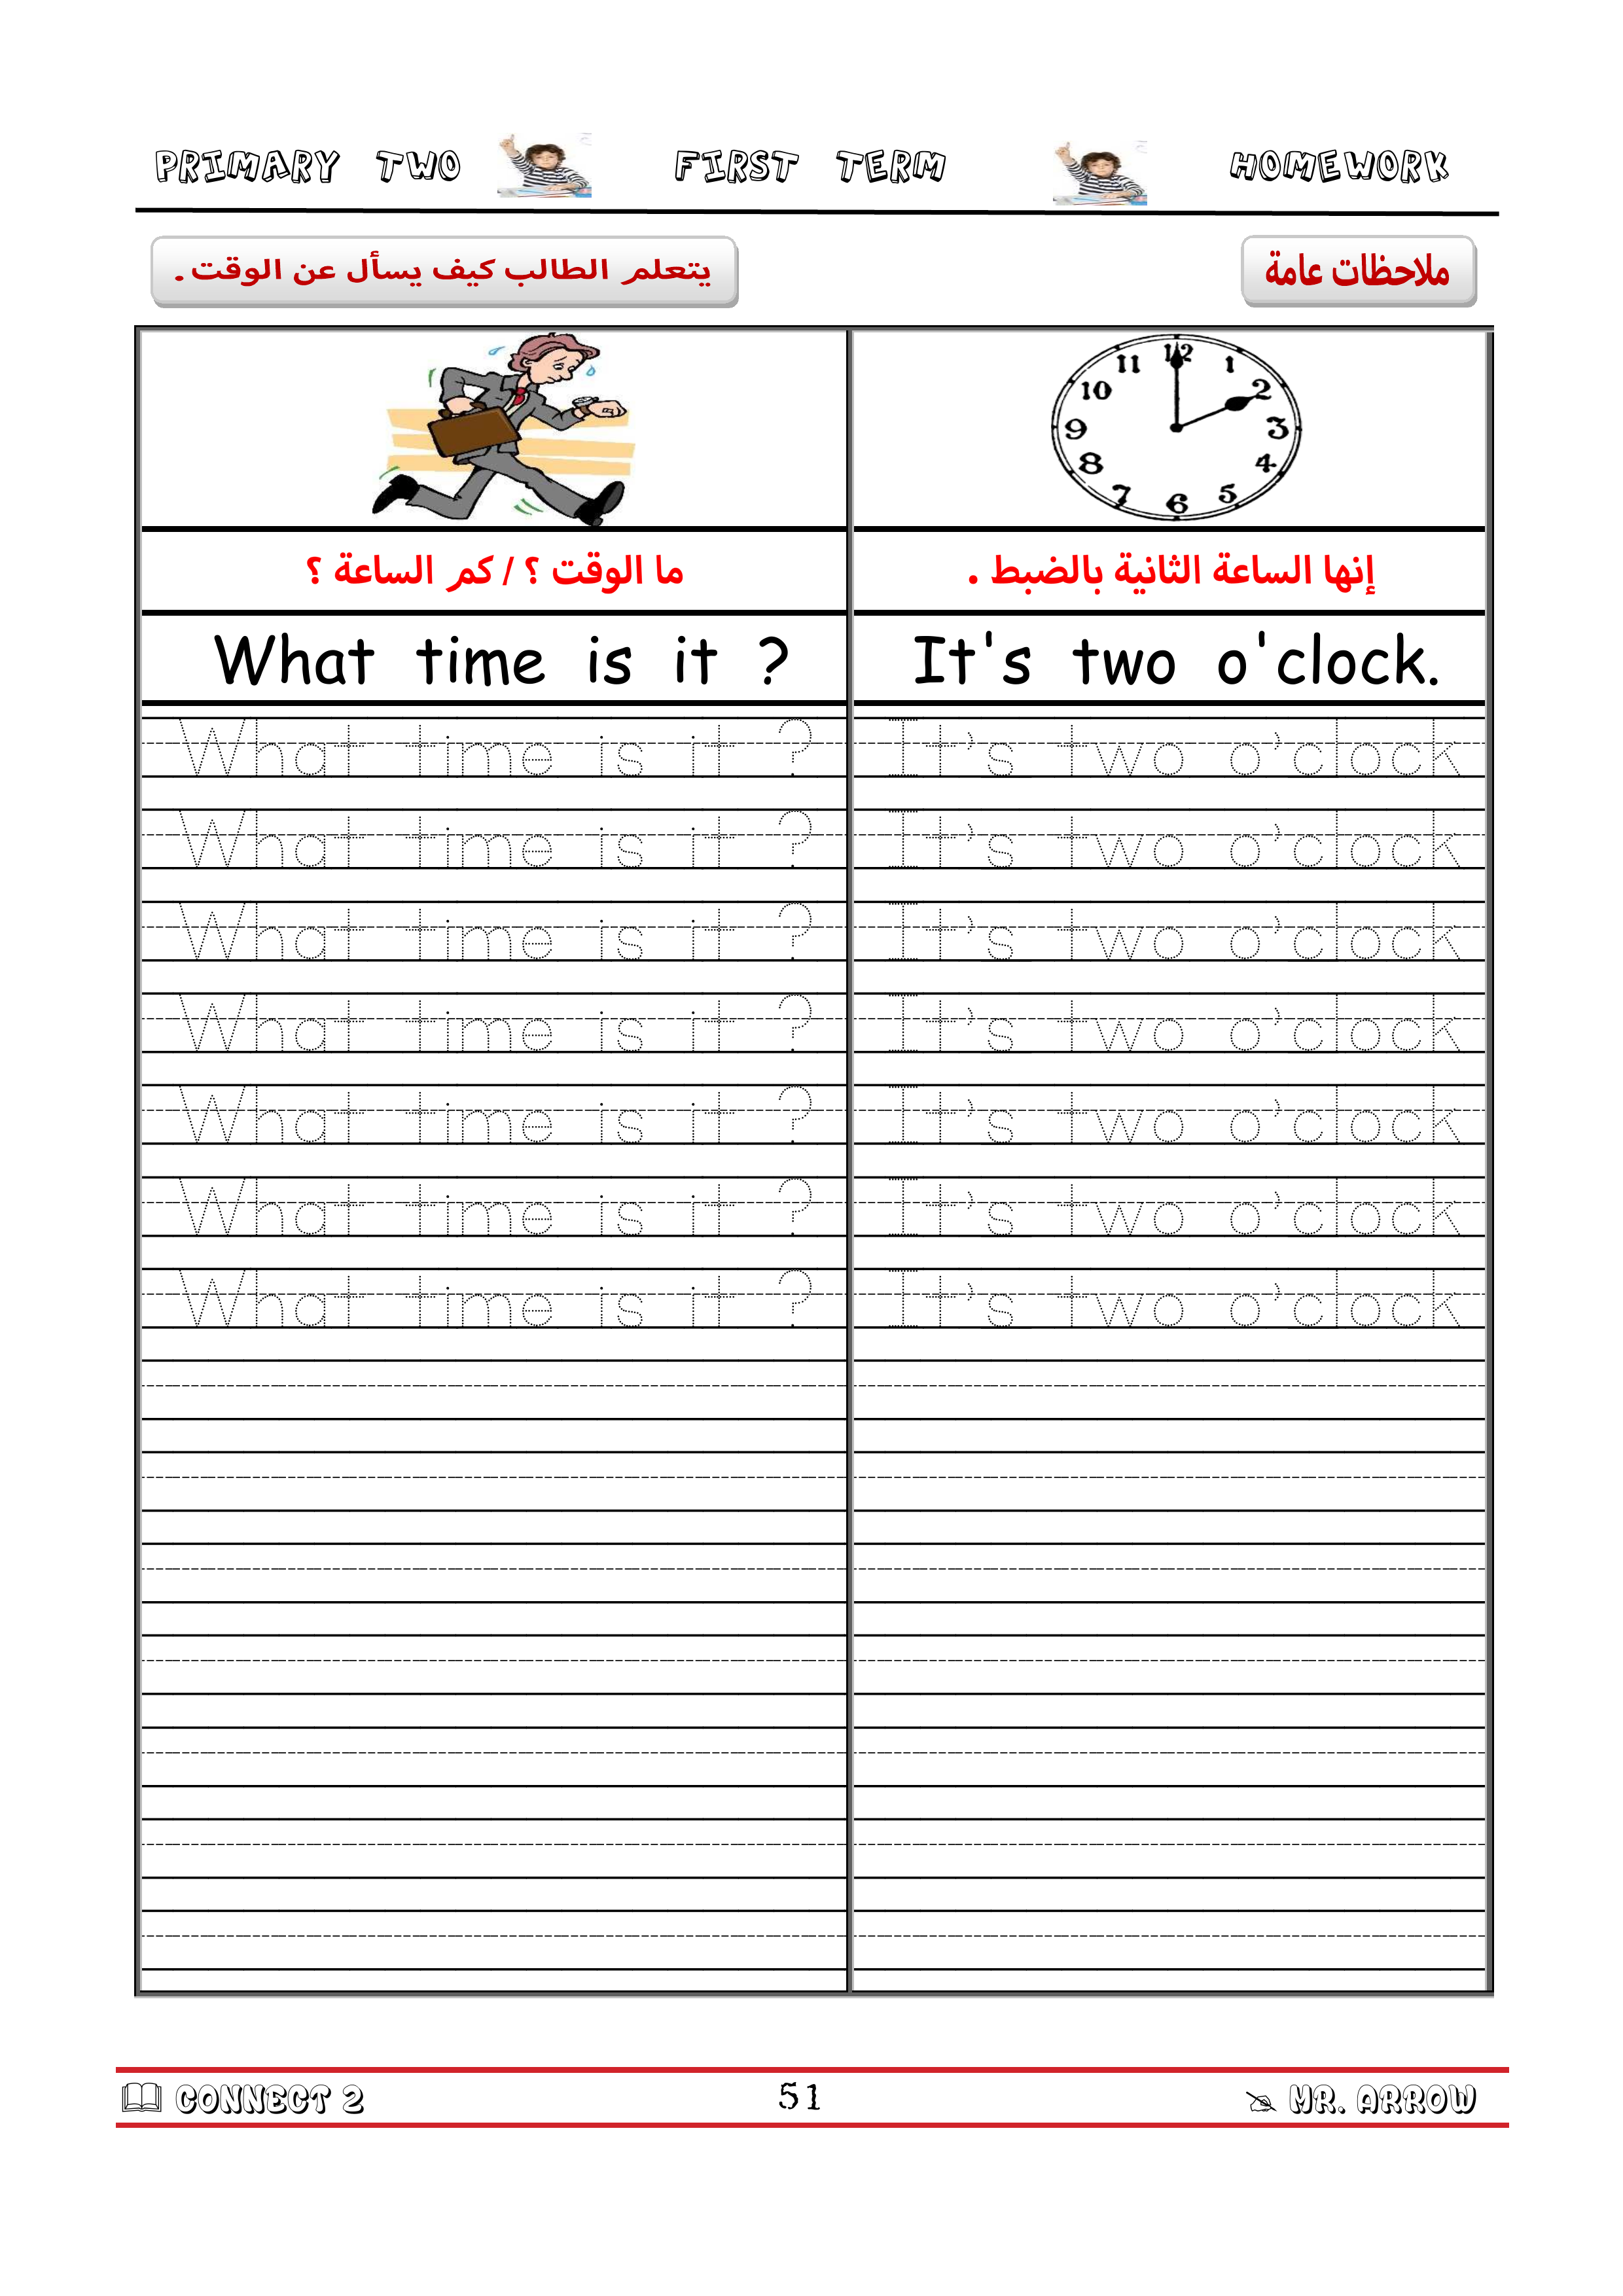 PRIMARY TWO FIRST TERM HOMEWORK
ملاحظات عامة
يتعلم الطالب كيف يسأل عن الوقت .
12
11 1
10 2
9 3
8 4
7 5
6
ما الوقت ؟ / كم الساعة ؟ إنها الساعة الثانية بالضبط .
What time is it ? It's two o'clock.
What time is it ? It's two o'clock
What time is it ? It's two o'clock
What time is it ? It's two o'clock
What time is it ? It's two o'clock
What time is it ? It's two o'clock
What time is it ? It's two o'clock
What time is it ? It's two o'clock
CONNECT 2 51 MR. ARROW